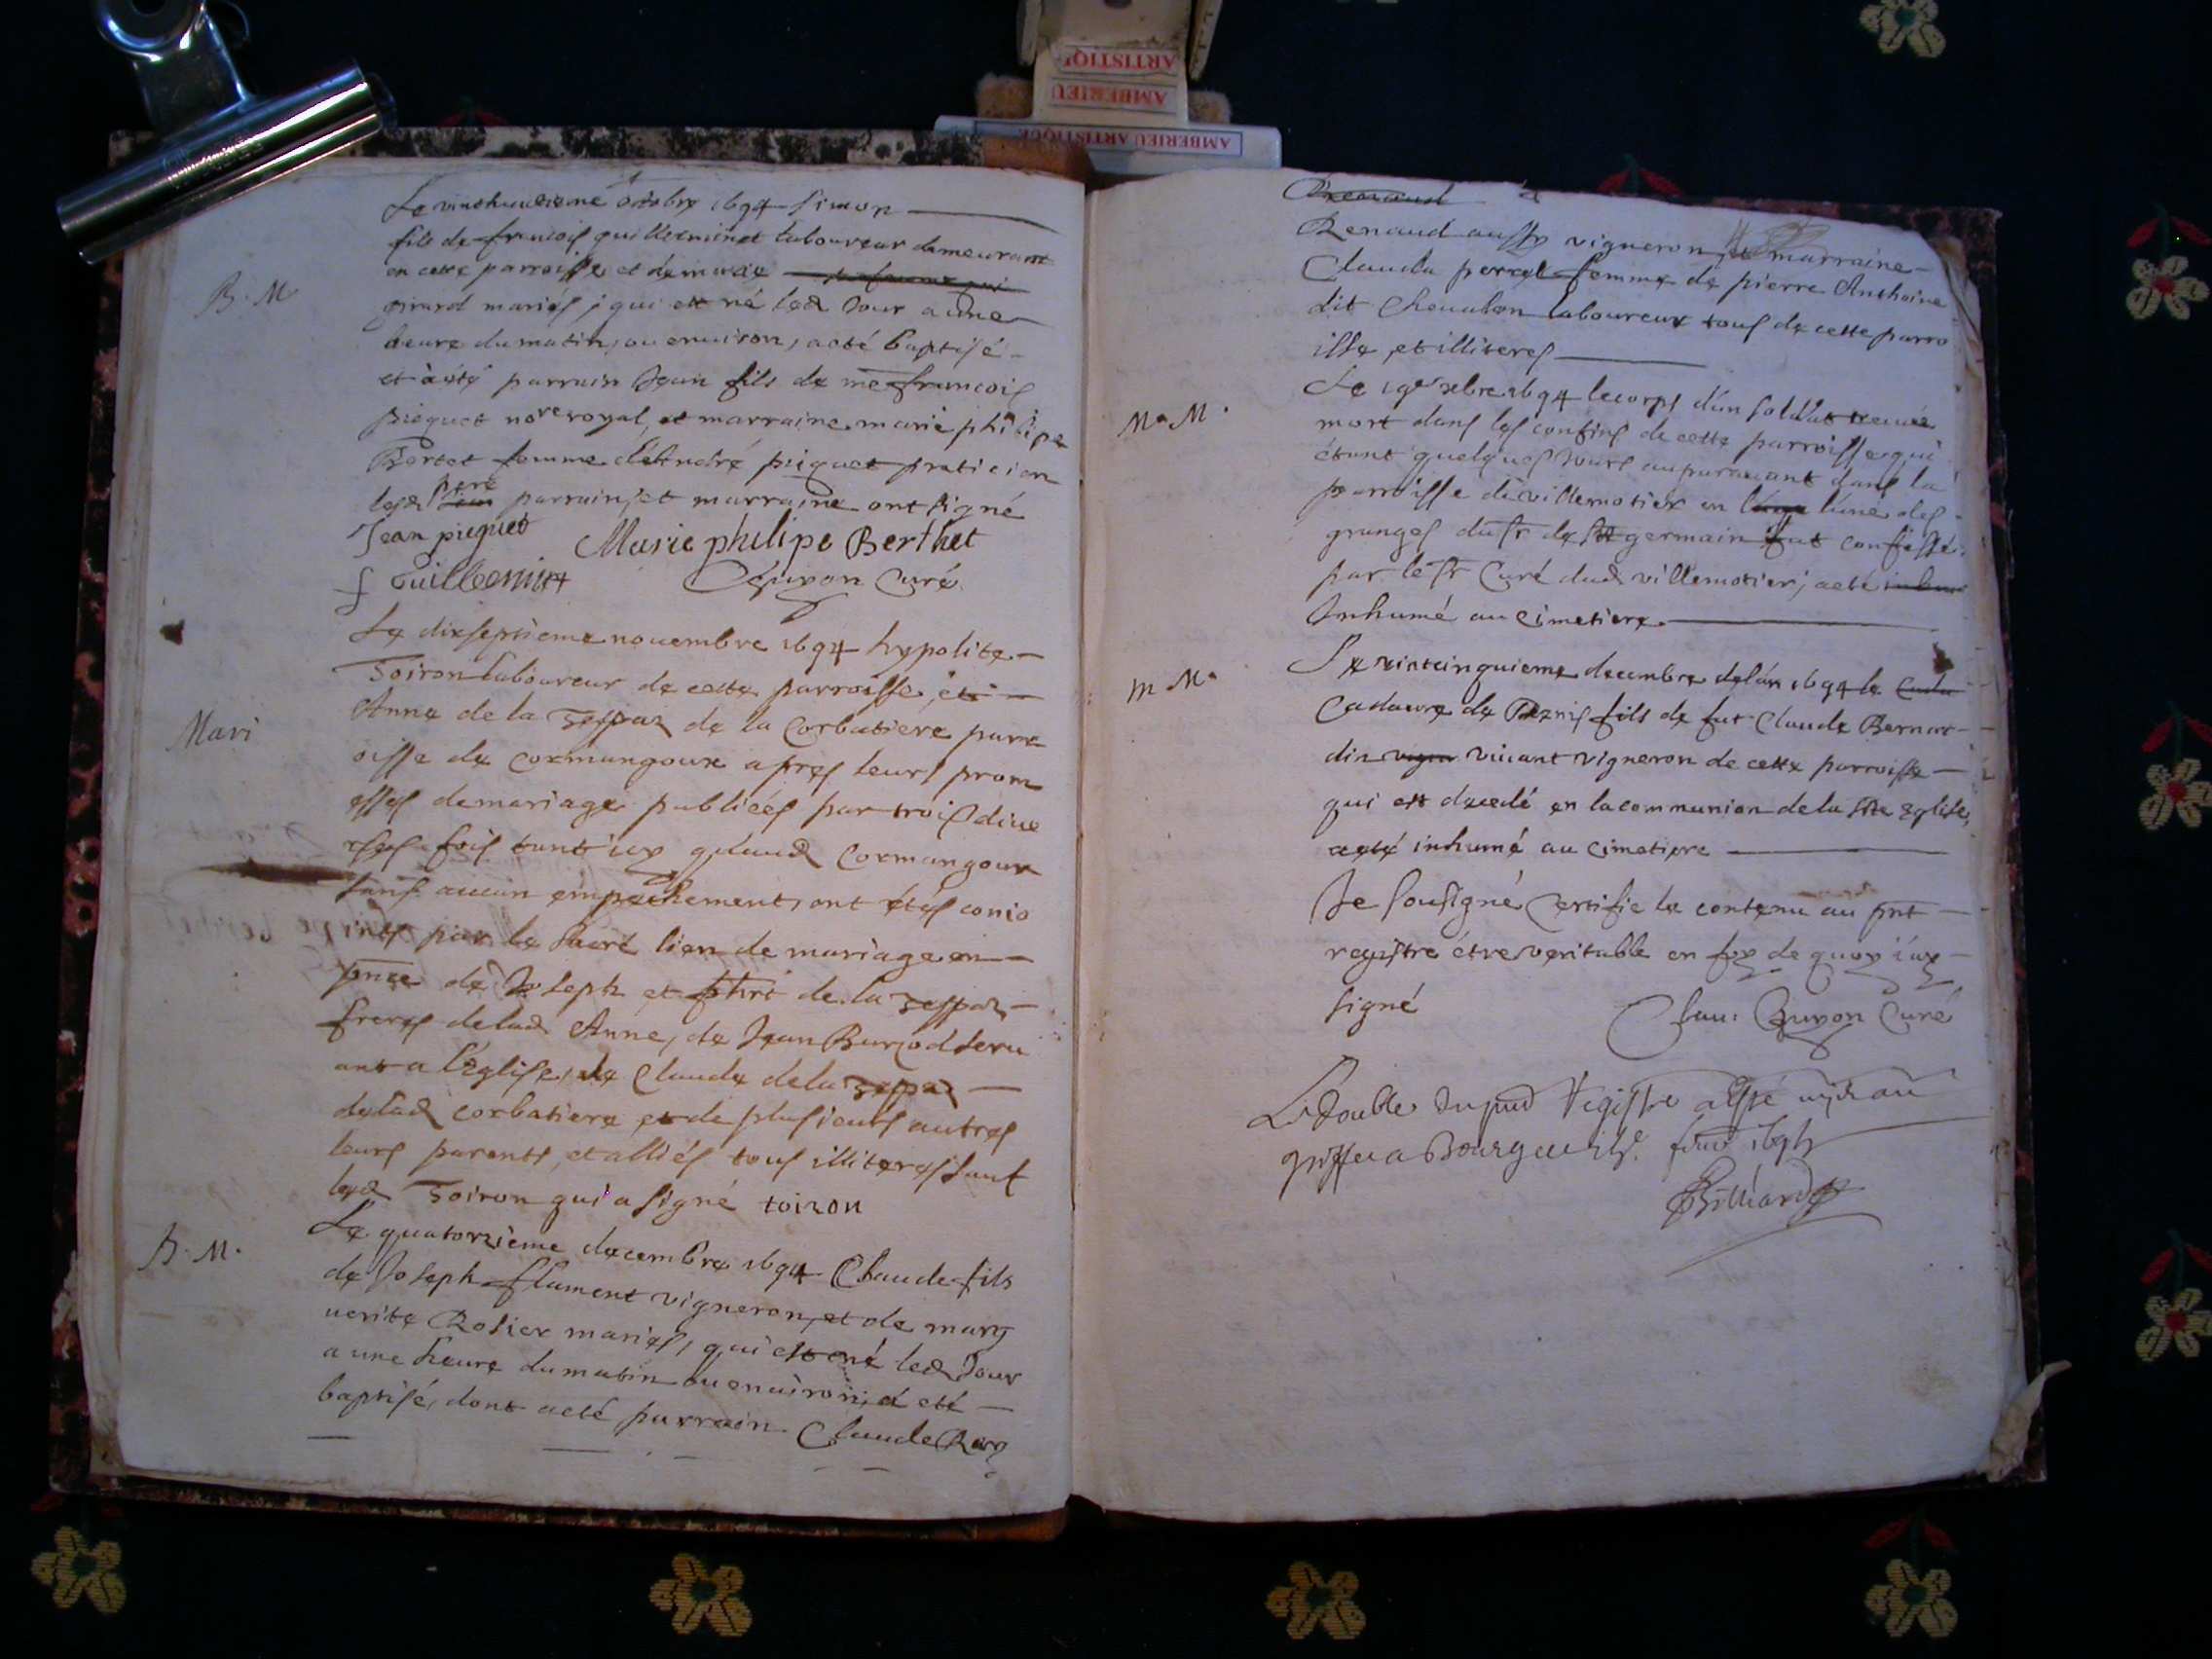 ARTISTIQ
AMBERIEU
AMBERIEU ARTISTIQUE
Le vinthuitieme octobre 1694 simon
fils de francois guillerminet laboureur demeurant
B. M
en cette parroisse et de marie
girard mariés, qui est né led Jour a une
heure du matin, ou environ, a été baptisé
et a été parrain Jean fils de me francois
pieguet nore royal, et marraine marie philipe
Bertet femme d'andré piguet praticien
lesd pere parrain, et marraine ont signé
Jean pieguet Marie philipe Berthet
f Guillerminet Buyon Curé
Le dixseptieme novembre 1694 hypolite
Toiron laboureur de cette parroisse, et
Mari
Anne de la Teyssonniere de la Corbatiere parr
oisse de Cormangoux apres leurs prom
esses de mariage publiées par trois dive
rses fois tant icy qu'aud Cormangoux
sans aucun empechement, ont étés conjo
ints par le sacré lien de mariage en
pnce de Joseph et de la
freres de lad Anne, de Jean Burcod serv
ant a l'Eglise, de Claude de la
de lad corbatiere et de plusieurs autres
leurs parents, et alliés tous illiteres sauf
led Toiron qui a signé toiron
B. M.
Le quatorzieme decembre 1694 Claude fils
de Joseph flament vigneron, et de marg
uerite Rosier mariés, qui est né led Jour
a une heure du matin ou environ, a eté
baptisé, dont a eté parrain Claude Rey
Renaud
Renaud aussy vigneron, et marraine
Clauda perret femme de pierre Anthoine
dit Chevalon laboureur tous de cette parro
isse, et illiteres
Ma M.
Le 19e xbre 1694 le corps d'un soldat trouvé
mort dans les confins de cette parroisse qui
étant quelques Jours auparavant dans la
parroisse de villemotier en l'une des
granges du sr de st germain fut confessé
par le sr Curé dud villemotier, a eté
Inhumé au Cimetiere
m Ma
Le vintcinquieme decembre de l'an 1694 le
Cadavre de Denis fils de fut Claude Bernar
din vivant vigneron de cette parroisse
qui est decedé en la communion de la ste Eglise,
a eté inhumé au Cimetiere
Je sousigné Certifie le contenu au pnt
registre étre veritable en foy de quoy i'ay
signé Claude Buyon Curé
Le double du pnt Registre a esté mis au
greffe a Bourg
Billiard